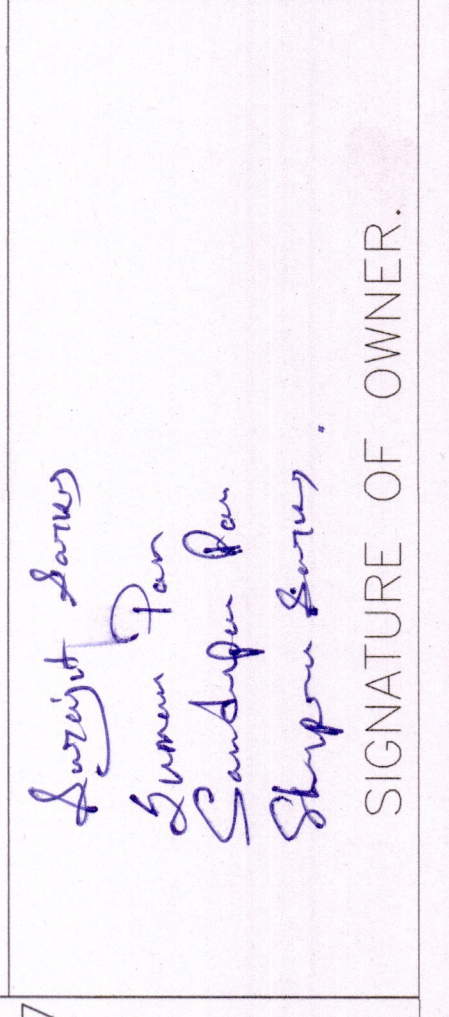 Surajit Sarkar
Suman Pan
Sandipan Pan
Sarkar.
SIGNATURE OF OWNER.